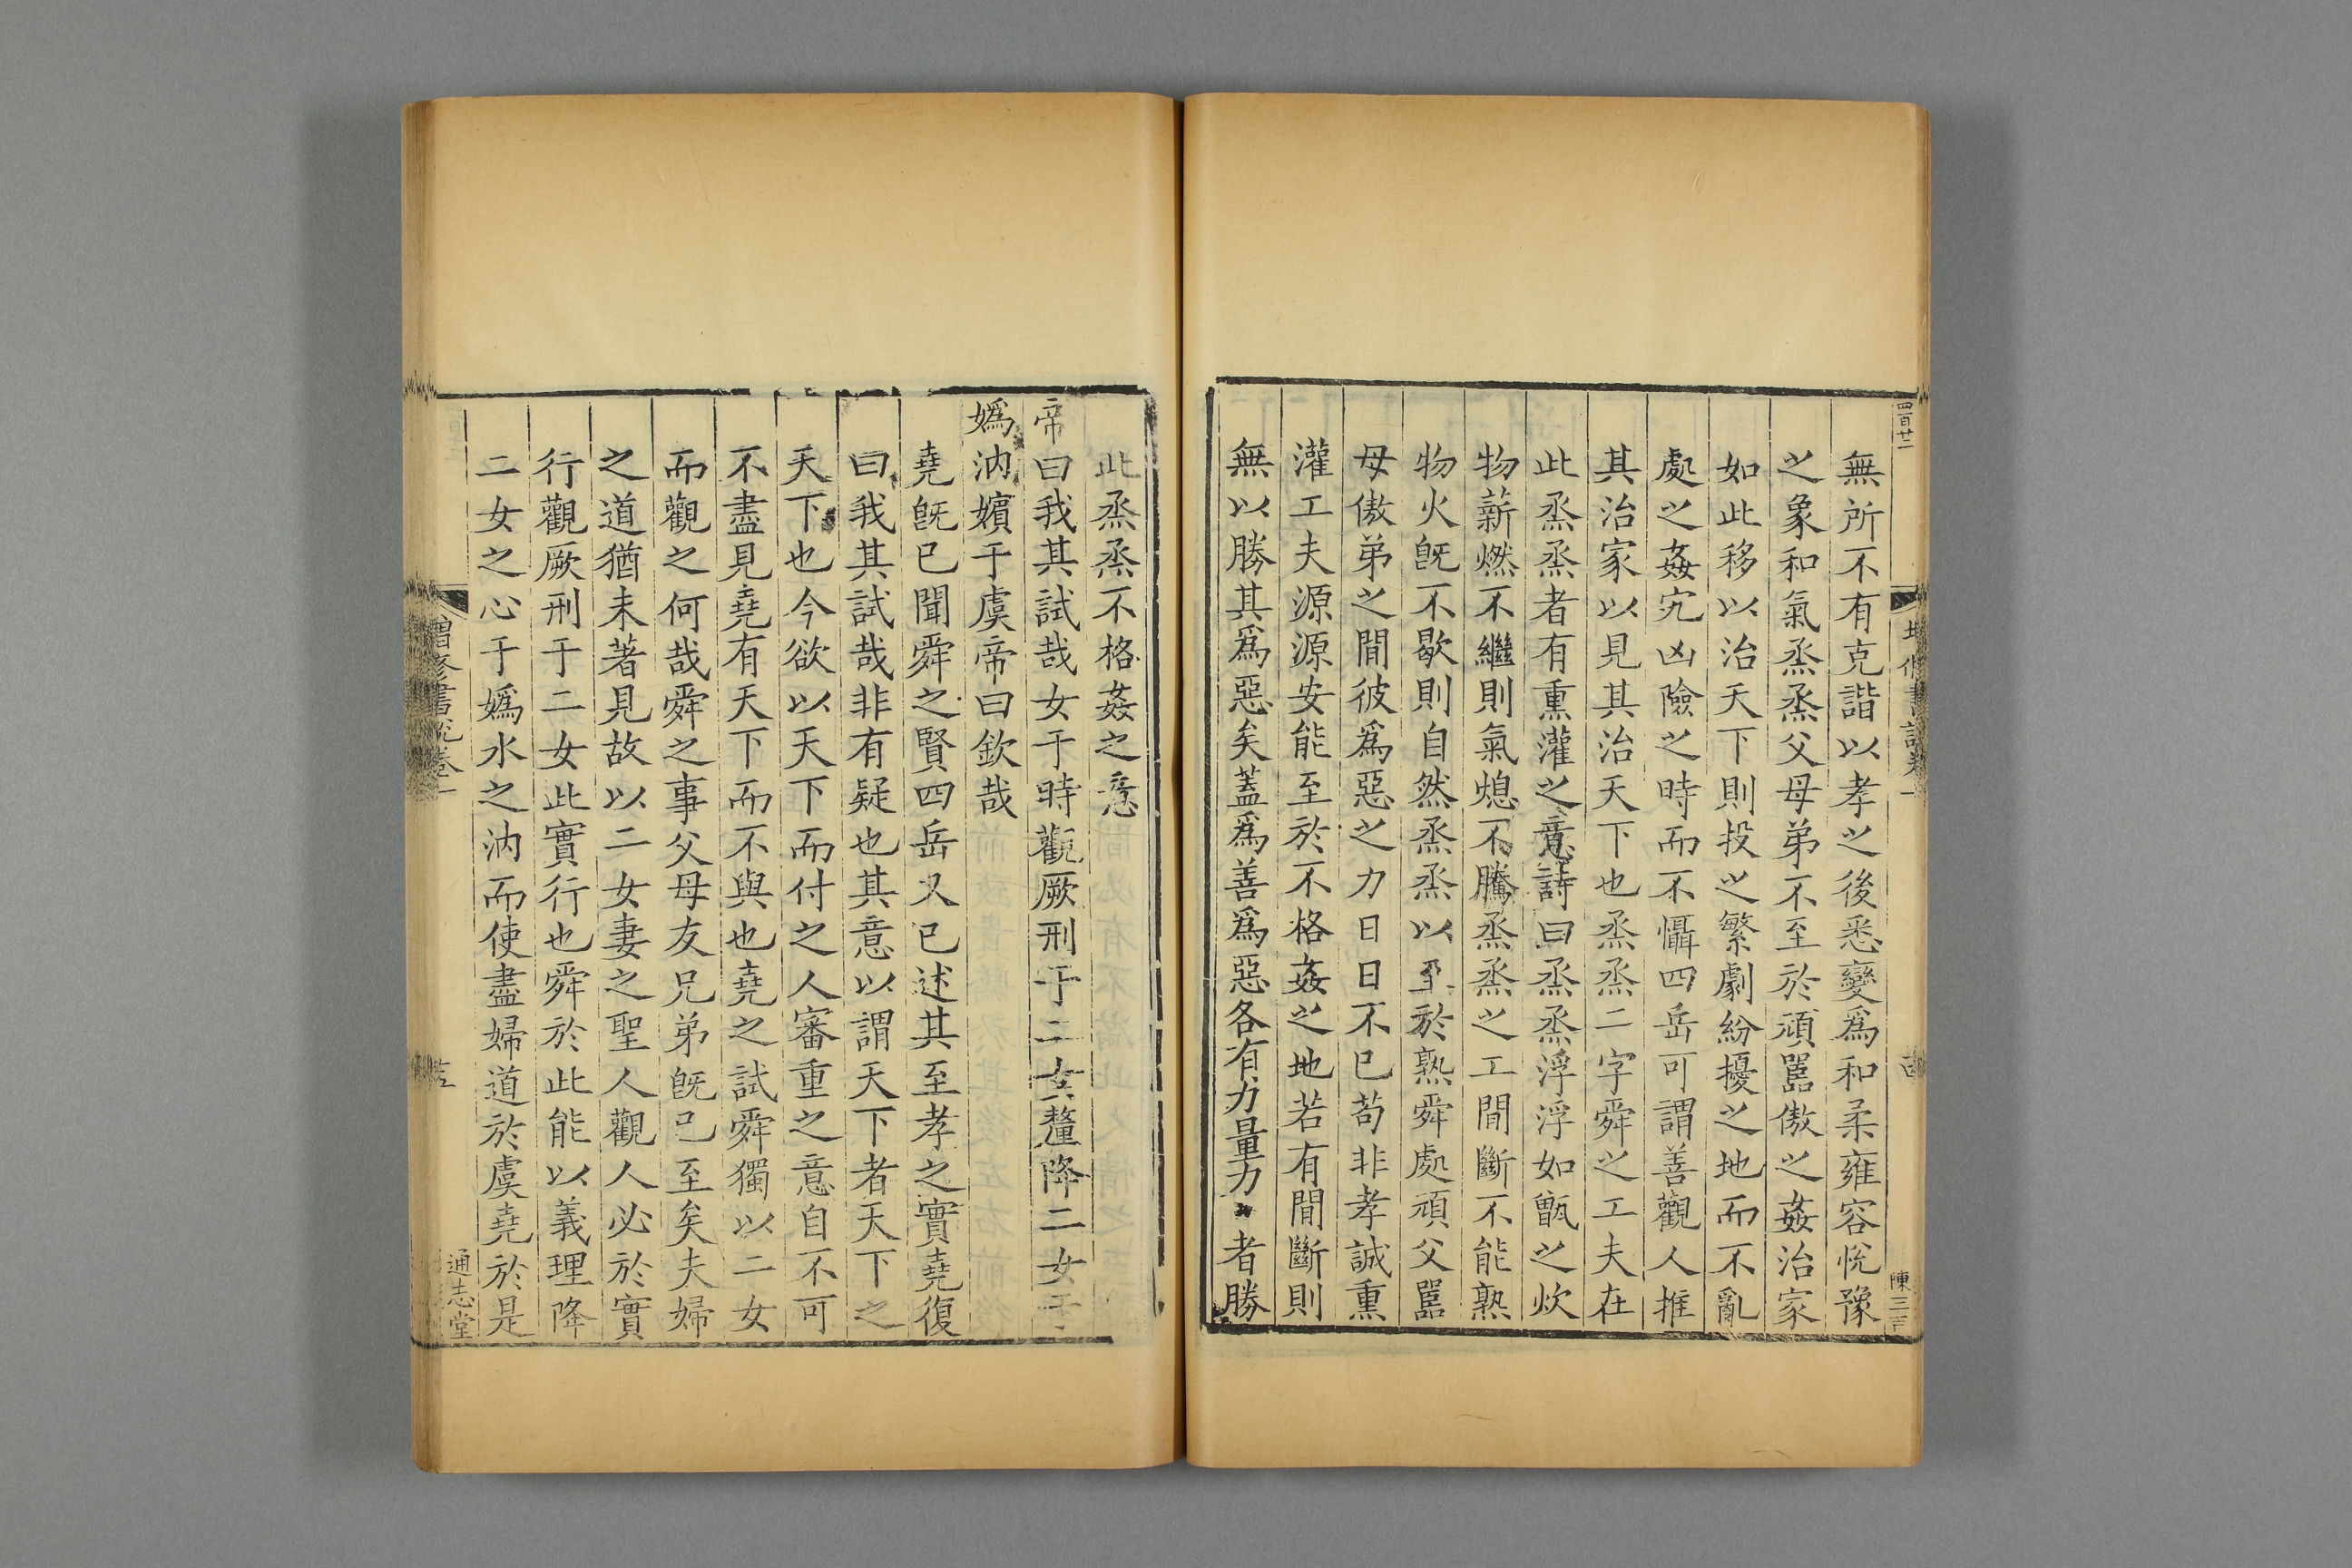 四百廿二
無所不有克諧以孝之後悉變爲和柔雍容悅豫
之象和氣烝烝父母弟不至於頑嚚傲之姦治家
如此移以治天下則投之繁劇紛擾之地而不亂
處之姦宄凶險之時而不懾四岳可謂善觀人推
其治家以見其治天下也烝烝二字舜之工夫在
此烝烝者有熏灌之意詩曰烝烝浮浮如甑之炊
物薪燃不繼則氣熄不騰烝烝之工間斷不能熟
物火旣不歇則自然烝烝以至於熟舜處頑父嚚
母傲弟之間彼爲惡之力日日不已苟非孝誠熏
灌工夫源源安能至於不格姦之地若有間斷則
無以勝其爲惡矣蓋爲善爲惡各有力量力者勝
此烝烝不格姦之意
帝曰我其試哉女于時觀厥刑于二女釐降二女于
嬀汭嬪于虞帝曰欽哉
堯旣已聞舜之賢四岳又已述其至孝之實堯復
曰我其試哉非有疑也其意以謂天下者天下之
天下也今欲以天下而付之人審重之意自不可
不盡見堯有天下而不與也堯之試舜獨以二女
而觀之何哉舜之事父母友兄弟旣已至矣夫婦
之道猶未著見故以二女妻之聖人觀人必於實
行觀厥刑于二女此實行也舜於此能以義理降
二女之心于嬀水之汭而使盡婦道於虞堯於是
增修書說卷一
通志堂